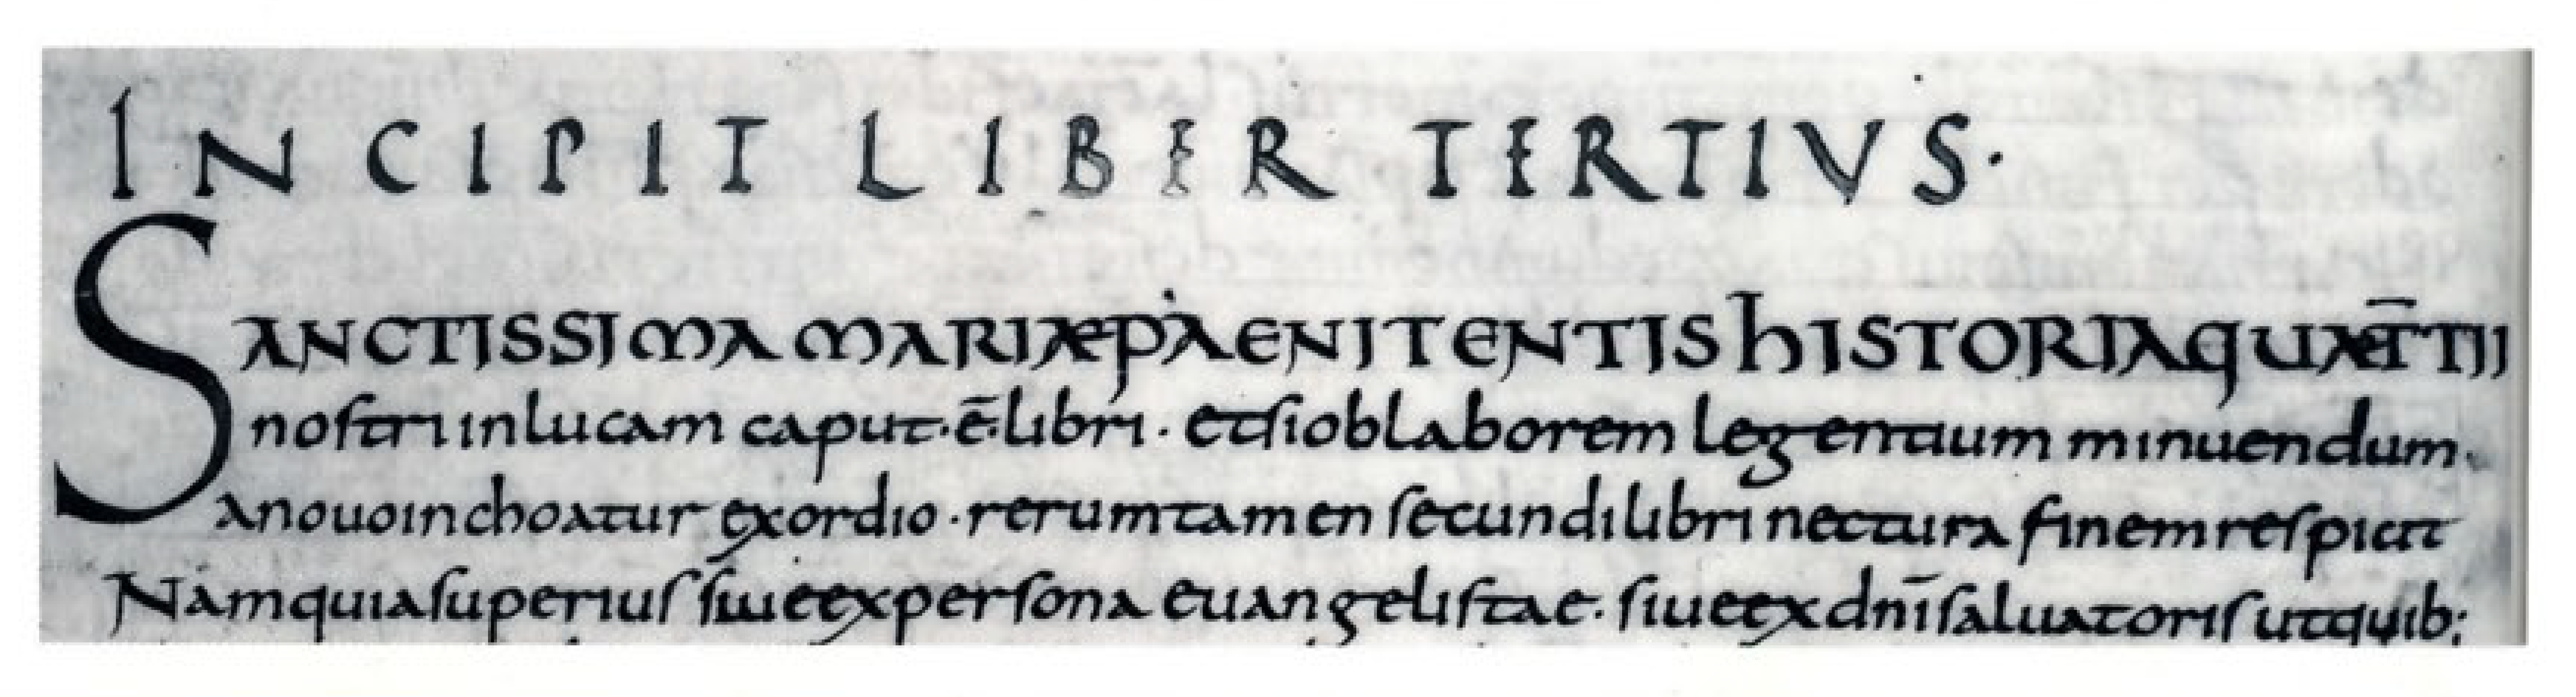 INCIPIT LIBER TERTIVS·
SANCTISSIMA MARIÆ PAENITENTIS hISTORIA QUAE T̄TII
nostri in lucam caput · ē · libri · et si ob laborem legentium minuendum ·
a nouo inchoatur exordio · rerum tamen secundi libri nec tura finem respicit
Nam quia superius siue ex persona euangelistae · siue ex dn̄i saluatoris utquib;